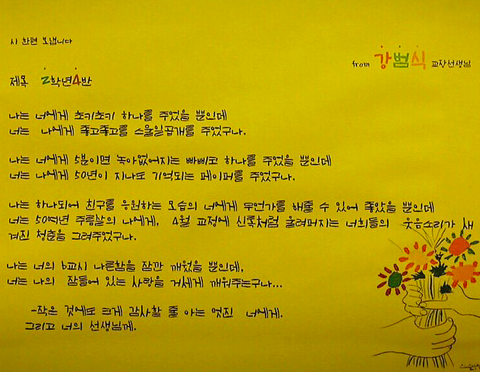 시 한편 보냅니다
from 강범식 교장선생님
제목 2학년4반
나는 너에게 쵸키쵸키 하나를 주었을 뿐인데
너는 나에게 좋고좋고를 스물일곱개를 주었구나.
나는 너에게 5분이면 녹아없어지는 빠삐코 하나를 주었을 뿐인데
너는 나에게 50년이 지나도 기억되는 페이퍼를 주었구나.
나는 하나되어 친구를 응원하는 모습의 너에게 무언가를 해줄 수 있어 좋았을 뿐인데
너는 50여년 주름살의 나에게, 4월 교정에 신록처럼 울려퍼지는 너희들의 웃음소리가 새
겨진 청춘을 그려주었구나.
나는 너의 6교시 나른함을 잠깐 깨웠을 뿐인데,
너는 나의 잠들어 있는 사랑을 거세게 깨워주는구나...
-작은 것에도 크게 감사할 줄 아는 멋진 너에게.
그리고 너의 선생님께.